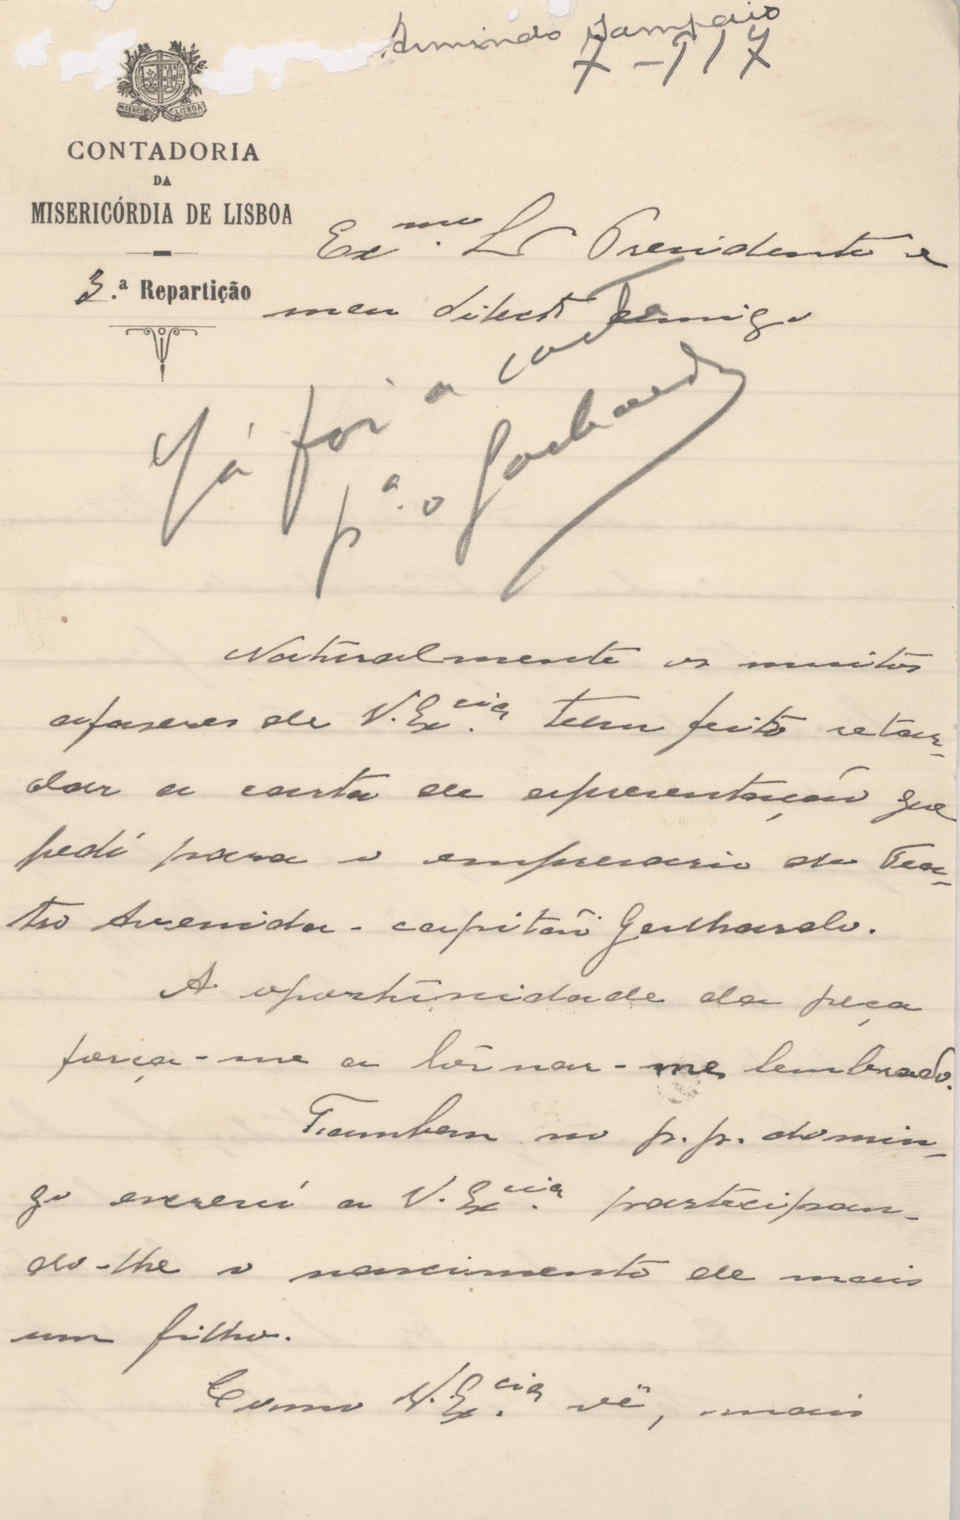 Armindo Sampaio
7-917
CONTADORIA
DA
MISERICÓRDIA DE LISBOA
3.ª Repartição
Exmo. Sr Presidente e
meu dilecto amigo
Já foi a carta
pª. o Gerhardo
Naturalmente os muitos
afaseres de V. Excia. teem feito retar-
dar a carta de apresentação que
pedi para o empresario do Tea-
tro Avenida - capitão Gerhardo.
A oportunidade da peça
força-me a tornar-me lembrado.
Tambem no p.p. domin-
go escrevi a V. Excia. participan-
do-lhe o nascimento de mais
um filho.
Como V. Excia. vê, mais